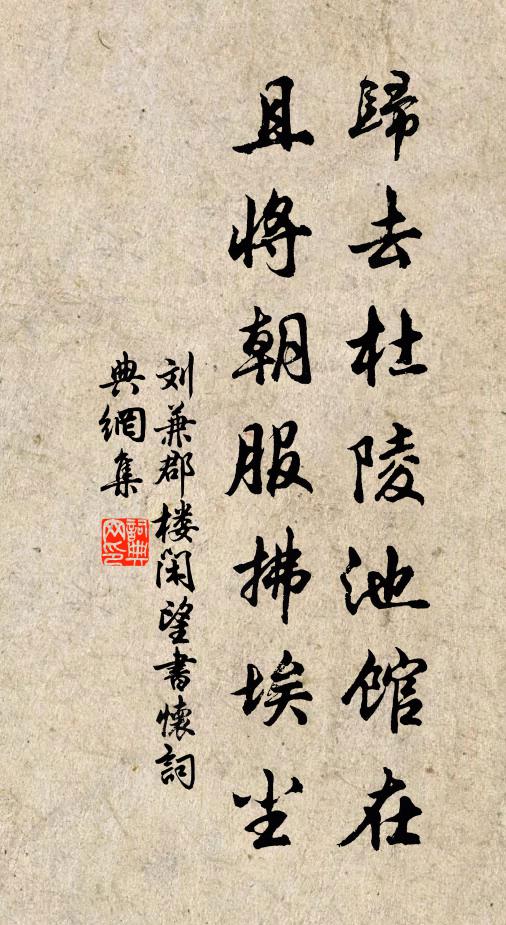 歸去杜陵池館在
且将朝服拂埃尘
刘兼郡楼闲望書懷詞
典網集
詞典網印